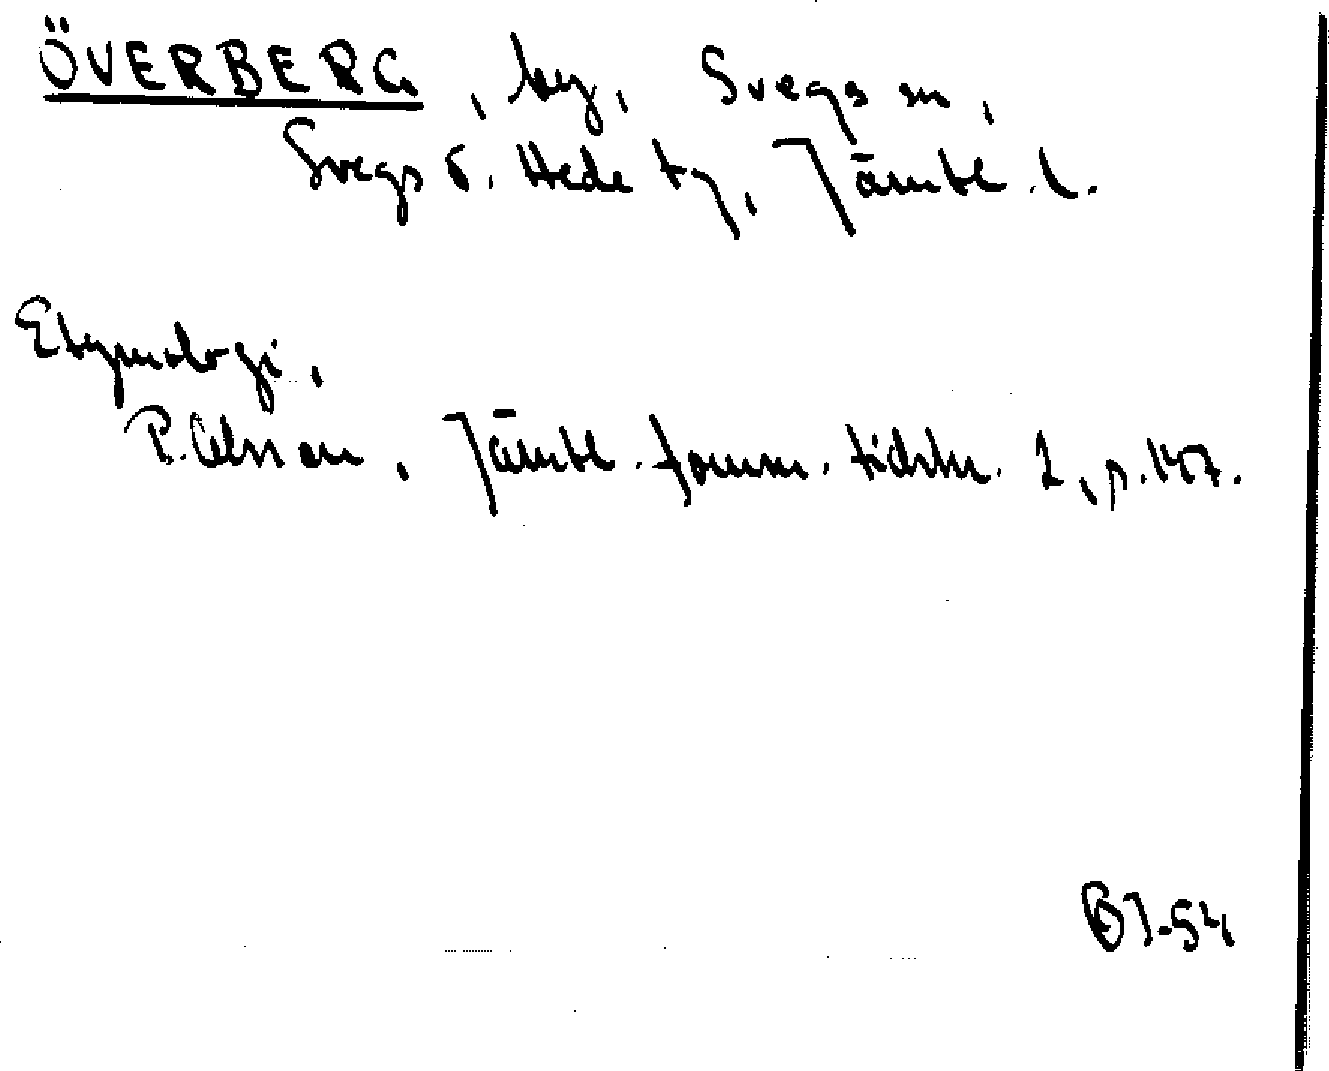 ÖVERBERG, by, Svegs sn,
Svegs o. Hede tg, Jämtl. l.
Etymologi,
P. Olsson, Jämtl. fornm. tidskr. 1, p. 147.
BJ-54